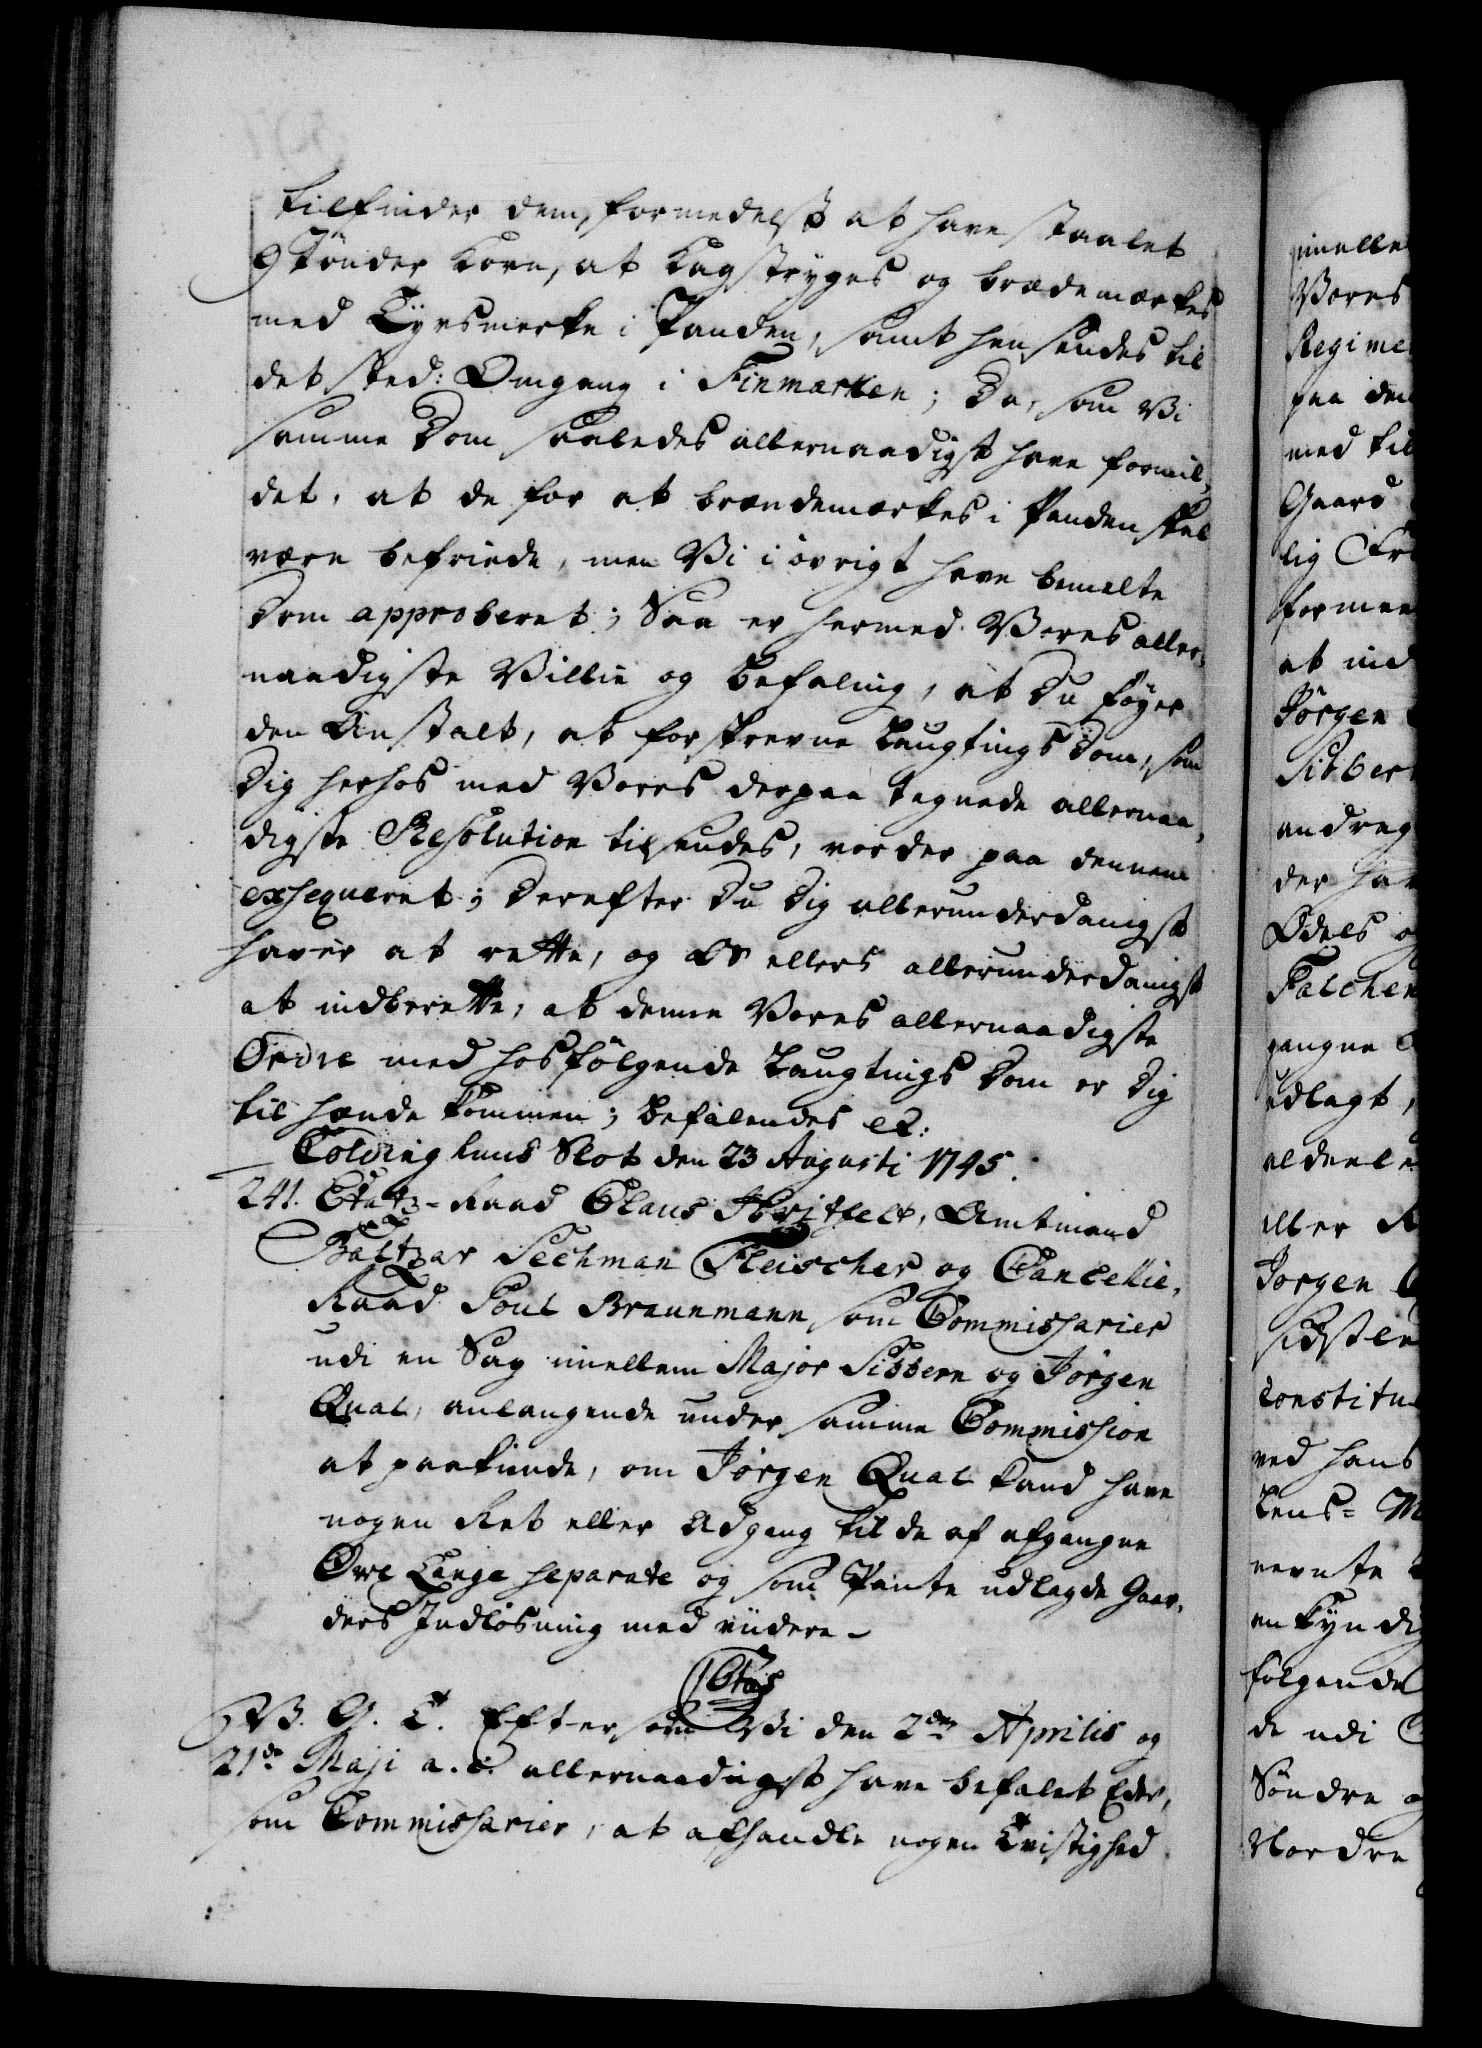 tilfinder dem, formedelst at have staalet
9 Tønder Korn, at Kagstryges og brædemærkes
med Tyvsmerke i Panden, samt hensendes til
det sted: Omgang i Finmarken; Da, som Vi
samme Dom saaledes allernaadigst have formil,
det, at de for at brændemærkes i Panden skal
være befriede, men Vi i øvrigt have bemelte
Dom approberet; Saa er hermed Vores aller,
naadigste Villie og Befaling, at Du føyer
den Anstalt, at forskrevne Laugtings Dom, som
Dig herhos med Vores derpaa tegnede allernaa,
digste Resolution tilsendes, vorder paa dennem
exseqveret; Derefter Du Dig allerunderdanigst
haver at rette, og Os ellers allerunderdanigst
at indberette, at denne Vores allernaadigste
Ordre med hosfølgende Laugtings Dom er Dig
til hænde kommen; Befalendes etc:
Colding huus Slot den 23 Augusti 1745.
241. Etatz-Raad Claus Fritfelt, Amtmand
Baltzar Sechman Fleischer og Cancellie,
Raad Poul Braunmann som Commissarier
udi en Sag imellem Major Sibbern og Jørgen
Qual, anlangende under samme Commission
at paakiende, om Jørgen Qual kand have
nogen Ret eller Adgang til de af afgangne
Ove Lange separate og som Pante udlagde Gaar,
ders Indløsning med viidere-
C. 6tus
V. G. T. Eftersom Vi den 2den Aprilis og
21de Maji a. c. allernaadigst have befalet Eder,
som Commissarier, at afhandle nogen Tvistighed
imelle
Vores
Regime
paa den
med til
Gaard
lig
at ind
Jørgen
Sibber
andrag
der hav
Odels og
Falchen
gangne
udlagt,
aldeele
eller
Jørgen
sidste
constitu
ved hans
Lens= M
nevnte
en kyndig
følgende
de udi
Søndre
Nordre